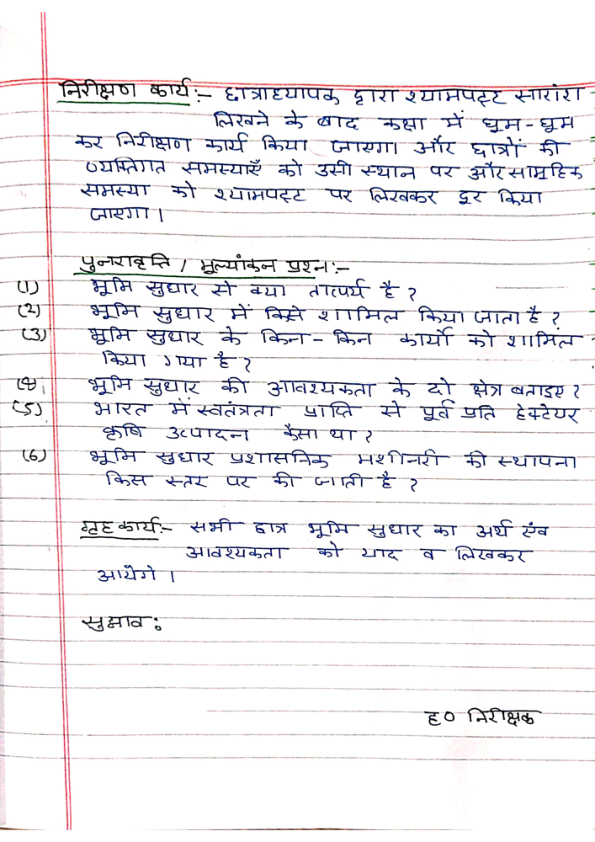 निरीक्षण कार्य:- छात्राध्यापक द्वारा श्यामपट्ट सारांश
लिखने के बाद कक्षा में घूम-घूम
कर निरीक्षण कार्य किया जाएगा और छात्रों की
व्यक्तिगत समस्याएँ को उसी स्थान पर और सामूहिक
समस्या को श्यामपट्ट पर लिखकर दूर किया
जाएगा।
पुनरावृत्ति / मूल्यांकन प्रश्न:-
(1) भूमि सुधार से क्या तात्पर्य है ?
(2) भूमि सुधार में किसे शामिल किया जाता है ?
(3) भूमि सुधार के किन-किन कार्यो को शामिल
किया गया है ?
(4) भूमि सुधार की आवश्यकता के दो क्षेत्र बताइए ?
(5) भारत में स्वतंत्रता प्राप्ति से पूर्व प्रति हेक्टेयर
कृषि उत्पादन कैसा था ?
(6) भूमि सुधार प्रशासनिक मशीनरी की स्थापना
किस स्तर पर की जाती है ?
गृहकार्य:- सभी छात्र भूमि सुधार का अर्थ एंव
आवश्यकता को याद व लिखकर
आयेगे।
सुझाव:
ह० निरीक्षक